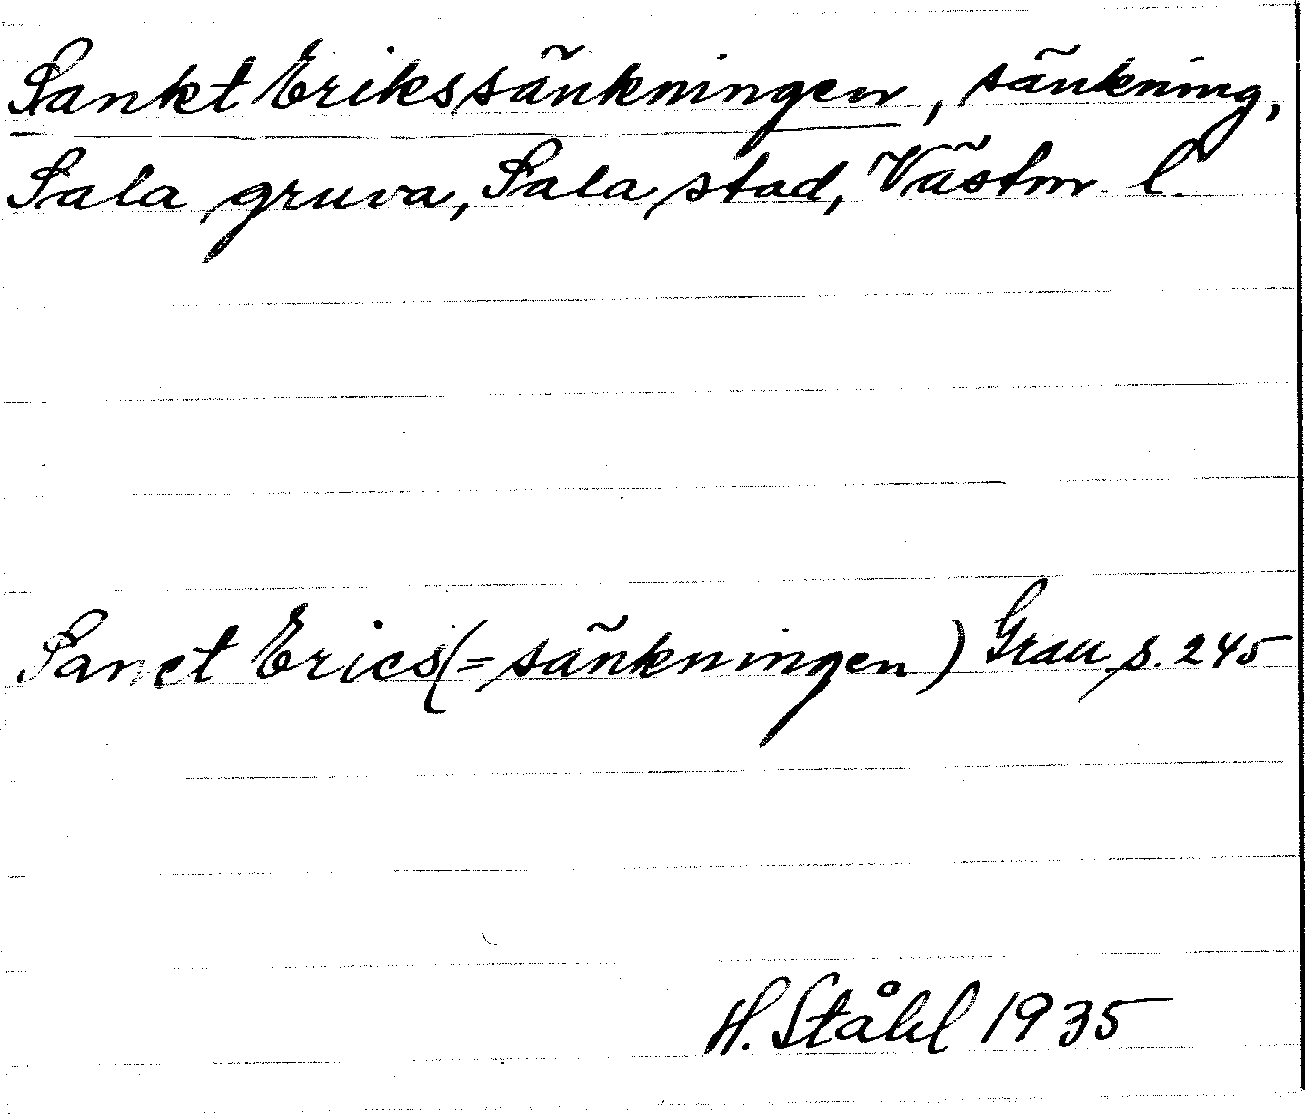 Sankt Erikssänkningen, sänkning,
Sala gruva, Sala stad, Västm l.
Sanct Erics(=sänkningen) Grau s. 245
H. Ståhl 1935